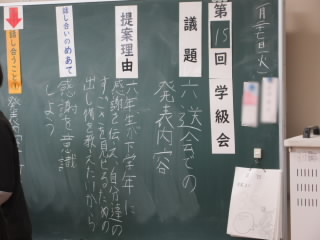 第15回学級会
議題
六送会での
発表内容
提案理由
六年生が下学年に
感謝を伝え、自分達の
すごさを見せるための
出し物を教えたいから
話し合いのめあて
感謝を意識
しよう
話し合うこと①
発表内